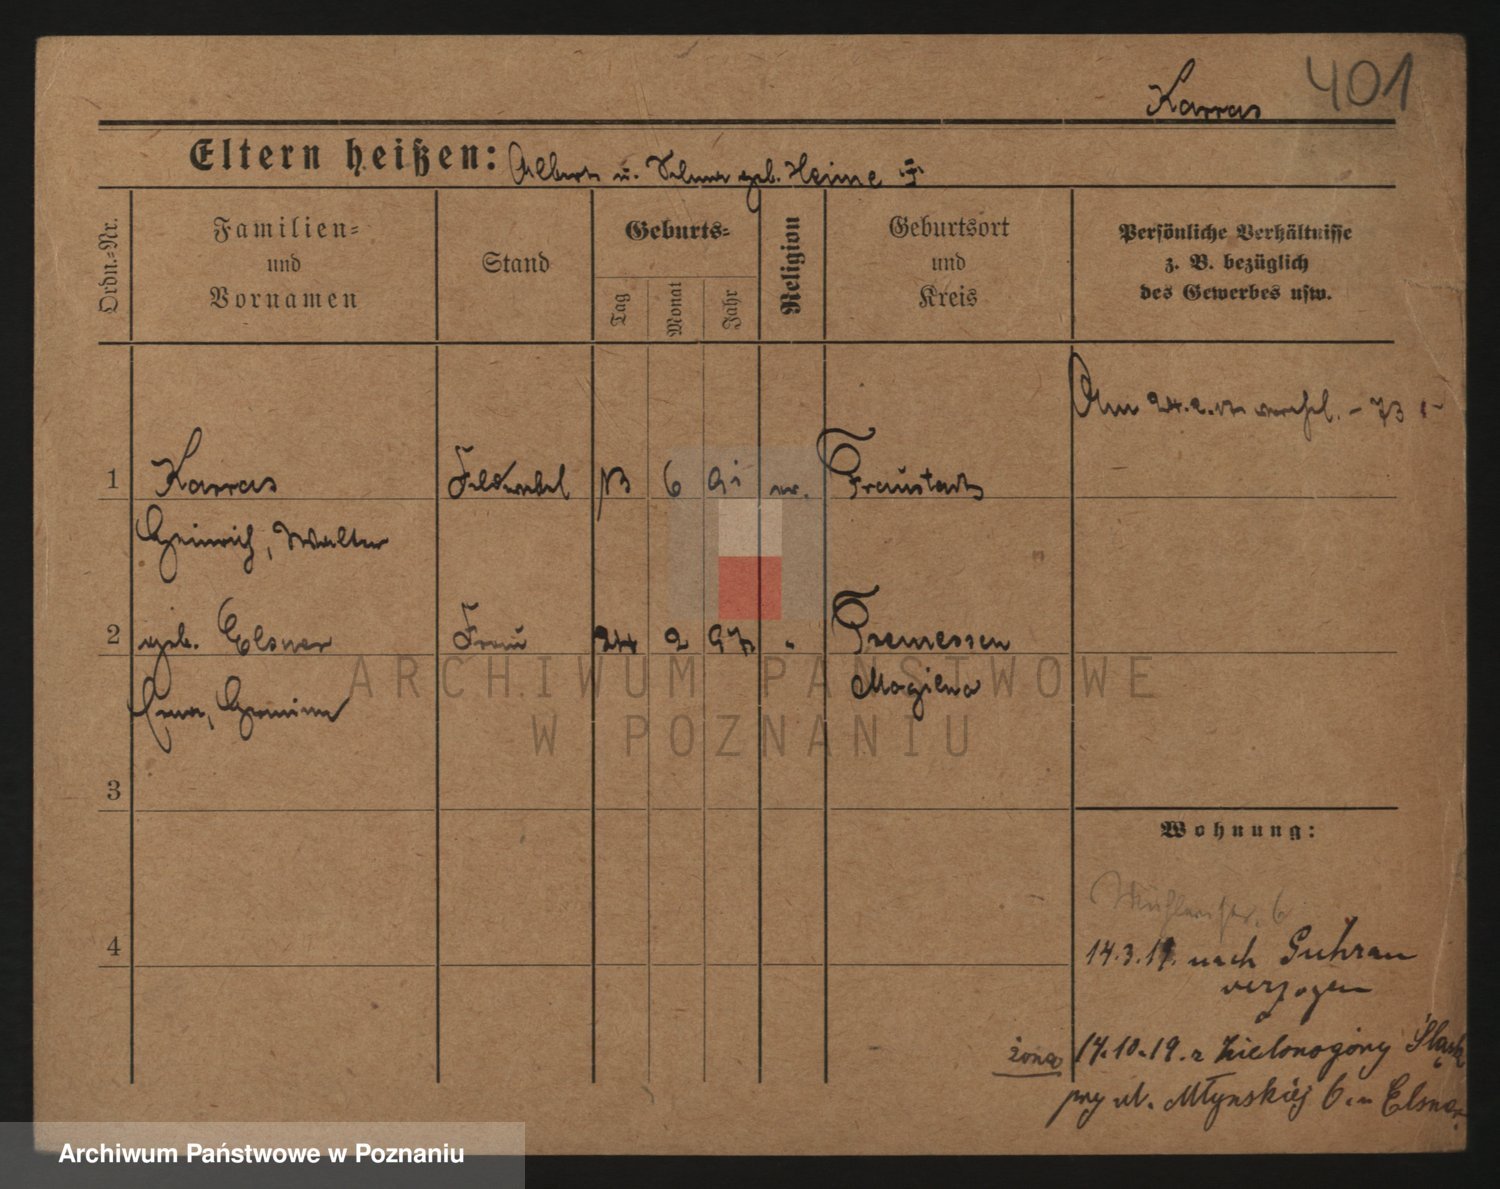 401
Karras
Eltern heißen: Albert u. Selma geb. Heine
Ordn.-Nr.
Familien-
und
Vornamen
Stand
Geburts-
Tag
Monat
Jahr
Religion
Geburtsort
und
Kreis
Persönliche Verhältnisse
z. B. bezüglich
des Gewerbes usw.
Am 24.2. verehel. - 73
1 Karras Feldwebel 13 6 91 ev. Fraustadt
Heinrich, Walter
2 geb. Elsner Frau 24 2 97 " Tremessen
Erna, Hermine Mogilno
3
4
Wohnung:
Mühlenstr. 6
14.3.19. nach Guhrau
verzogen
żona 17.10.19. z Zielonogóry Śląsk
przy ul. Młyńskiej 6 u Elsner
ARCHIWUM PAŃSTWOWE
W POZNANIU
Archiwum Państwowe w Poznaniu